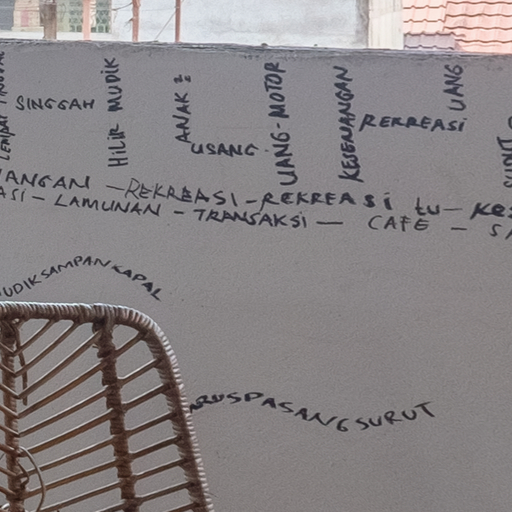 SINGGAH
HILIR MUDIK
ANAK2
USANG
UANG-MOTOR
KESENJANGAN
REKREASI
UANG
ANGAN - REKREASI - REKREASI tu - KES
ASI - LAMUNAN - TRANSAKSI - CAFE - SA
UDIKSAMPANKAPAL
ARUSPASANGSURUT